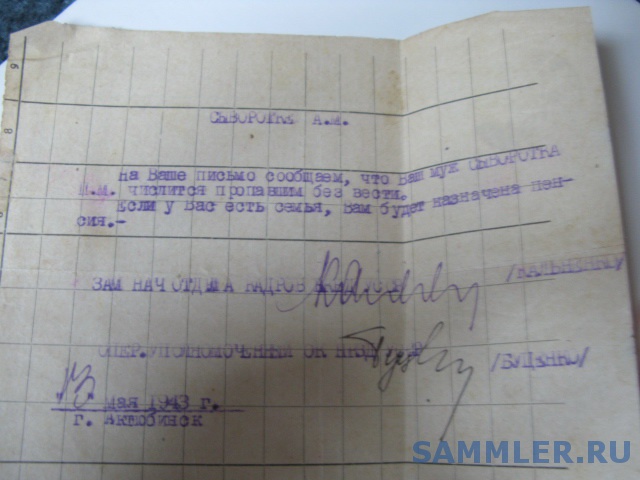 СЫВОРОТКЕ А.М.
На Ваше письмо сообщаем, что Ваш муж СЫВОРОТКА
М. числится пропавшим без вести.
Если у Вас есть семья, Вам будет назначена пен-
сия.-
ЗАМ НАЧ ОТДЕЛА КАДРОВ
ОПЕР.УПОЛНОМОЧЕННЫЙ ОК /БУЦЕНКО/
"13" мая 1943 г.
г. Актюбинск
SAMMLER.RU
9
8